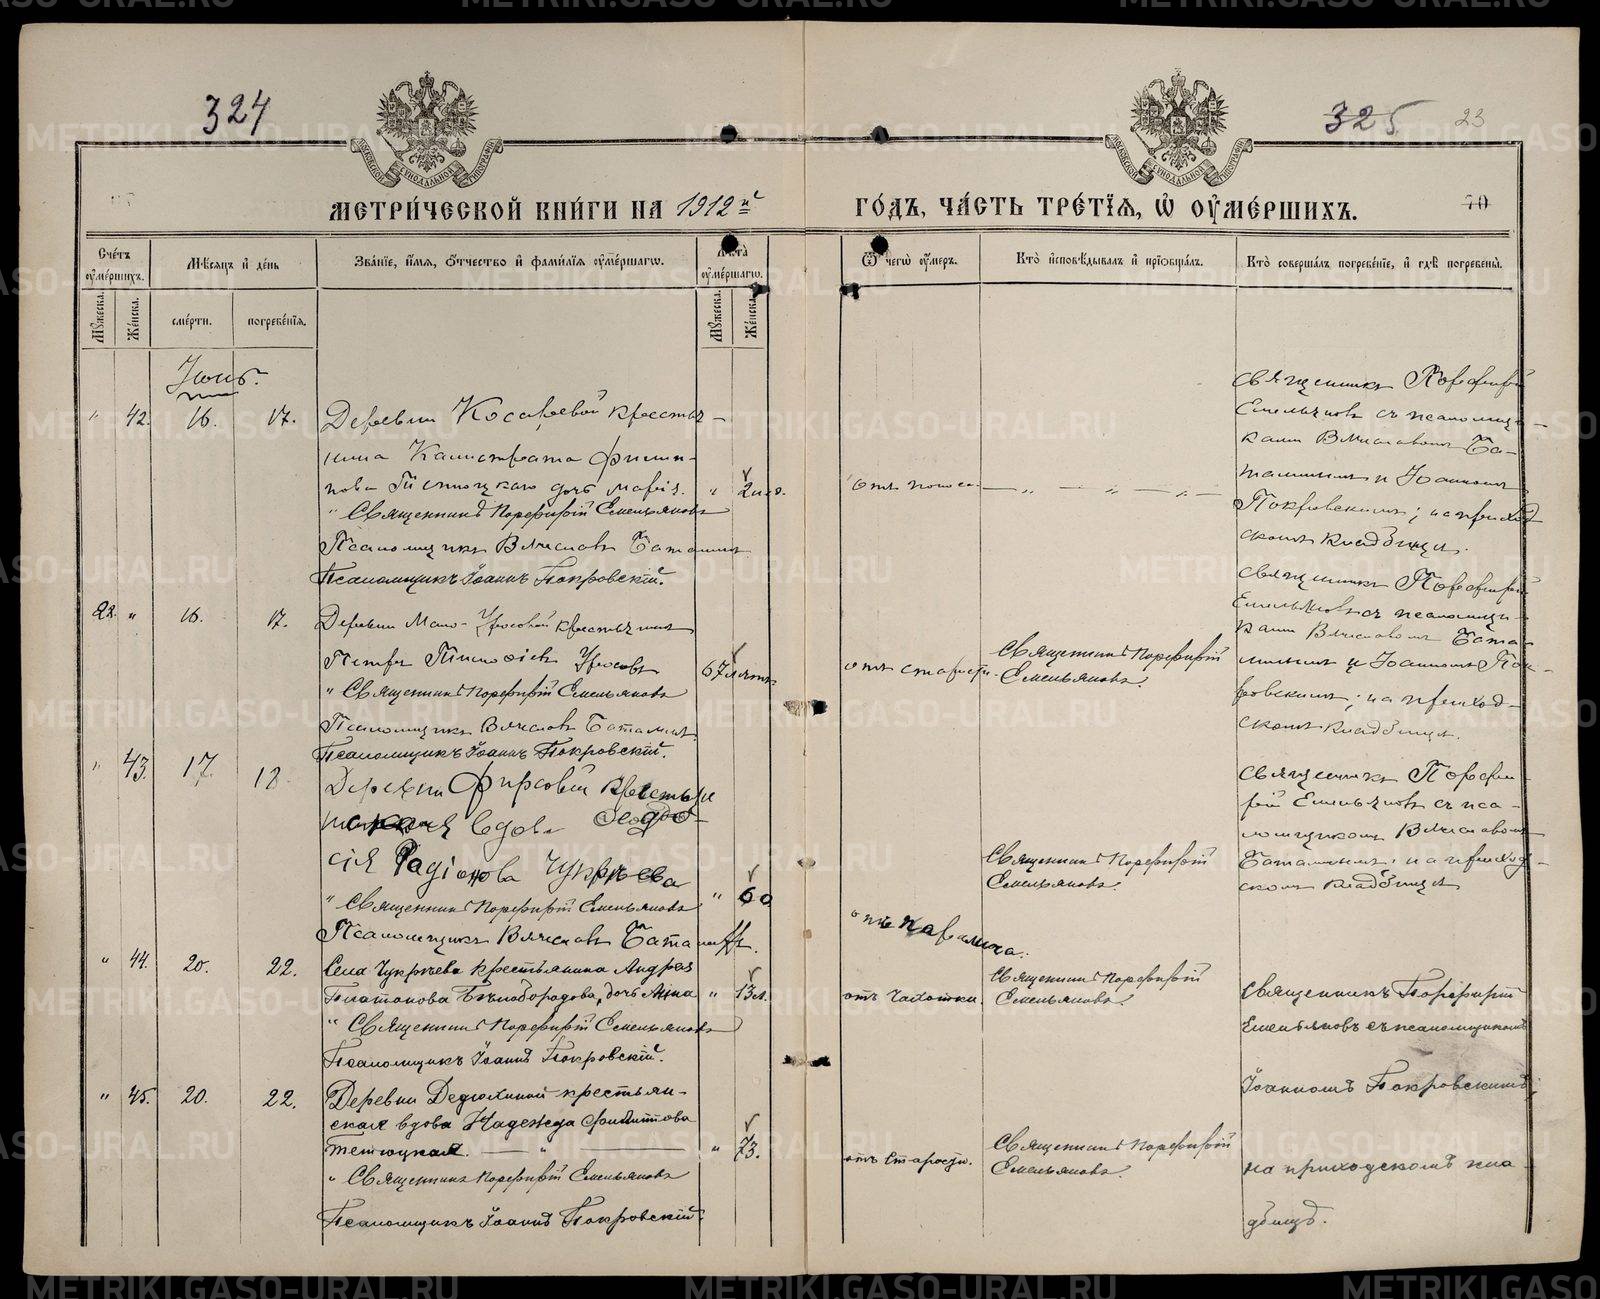 324
325
23
МЕТРИ́ЧЕСКОЙ КНИ́ГИ НА 1912й
ГО́ДЪ, ЧА́СТЬ ТРЕ́ТІЯ, Ѡ ОУМЕ́РШИХЪ.
70
Сче́тъ оуме́ршихъ.
Мѣсяцъ и де́нь
Зва́ніе, и́мя, о́тчество и фами́лія оуме́ршаго.
Лѣта оуме́ршаго.
Ѿ чегѡ оу́меръ.
Кто̀ исповѣдывалъ и пріобща́лъ.
Кто̀ соверша́лъ погребе́ніе, и гдѣ погребены̀.
Мꙋжеска.
Же́нска.
сме́рти.
погребе́нія.
Мꙋжеска.
Же́нска.
Іюнь.
" 42. 16. 17.
Деревни Косаревой крестья-
нина Калистрата Филип-
пова Тетюцкаго дочь Марія. " 2
" Священникъ Порфирій Емельяновъ
Псаломщикъ Вячеславъ Баталинъ
Псаломщикъ Іоаннъ Покровскій.
отъ поноса — „ — „ — „ —
священникъ Порфирій
Емельяновъ съ псаломщи-
ками Вячеславомъ Ба-
талинымъ и Іоанномъ
Покровскимъ; на приход
скомъ кладбищѣ.
22. " 16. 17.
Деревни Мало-Уросовой крестьянинъ
Петръ Уросовъ 67 лѣтъ
" Священникъ Порфирій Емельяновъ
Псаломщикъ Вячеславъ Баталинъ.
Псаломщикъ Іоаннъ Покровскій.
отъ старости.
Священникъ Порфирій
Емельяновъ.
священникъ Порфирій
Емельяновъ съ псаломщи-
ками Вячеславомъ Бата-
линымъ и Іоанномъ Пок-
ровскимъ; на приход-
скомъ кладбищѣ.
" 43. 17. 18
Деревни Фирсовой крестья
вдова Ѳеодо-
сія Радіонова Чукрѣева " 60
" Священникъ Порфирій Емельяновъ
Псаломщикъ Вячеславъ Баталинъ.
отъ паралича.
Священникъ Порфирій
Емельяновъ.
священникъ Порфи-
рій Емельяновъ съ пса-
ломщикомъ Вячеславомъ
Баталинымъ; на приход-
скомъ кладбищѣ
" 44. 20. 22.
Села Чукрѣева крестьянина Андрея
Платонова Бѣлобородова, дочь Анна " 13
" Священникъ Порфирій Емельяновъ
Псаломщикъ Іоаннъ Покровскій.
отъ чахотки.
Священникъ Порфирій
Емельяновъ.
Священникъ Порфирій
Емельяновъ съ псаломщикомъ
Іоанномъ Покровскимъ;
" 45. 20. 22.
Деревни Дедюхиной крестьян-
ская вдова Надежда Филиппова
Тетюцкая. — " — " 73.
" Священникъ Порфирій Емельяновъ
Псаломщикъ Іоаннъ Покровскій.
отъ старости.
Священникъ Порфирій
Емельяновъ.
на приходскомъ кла-
дбищѣ.